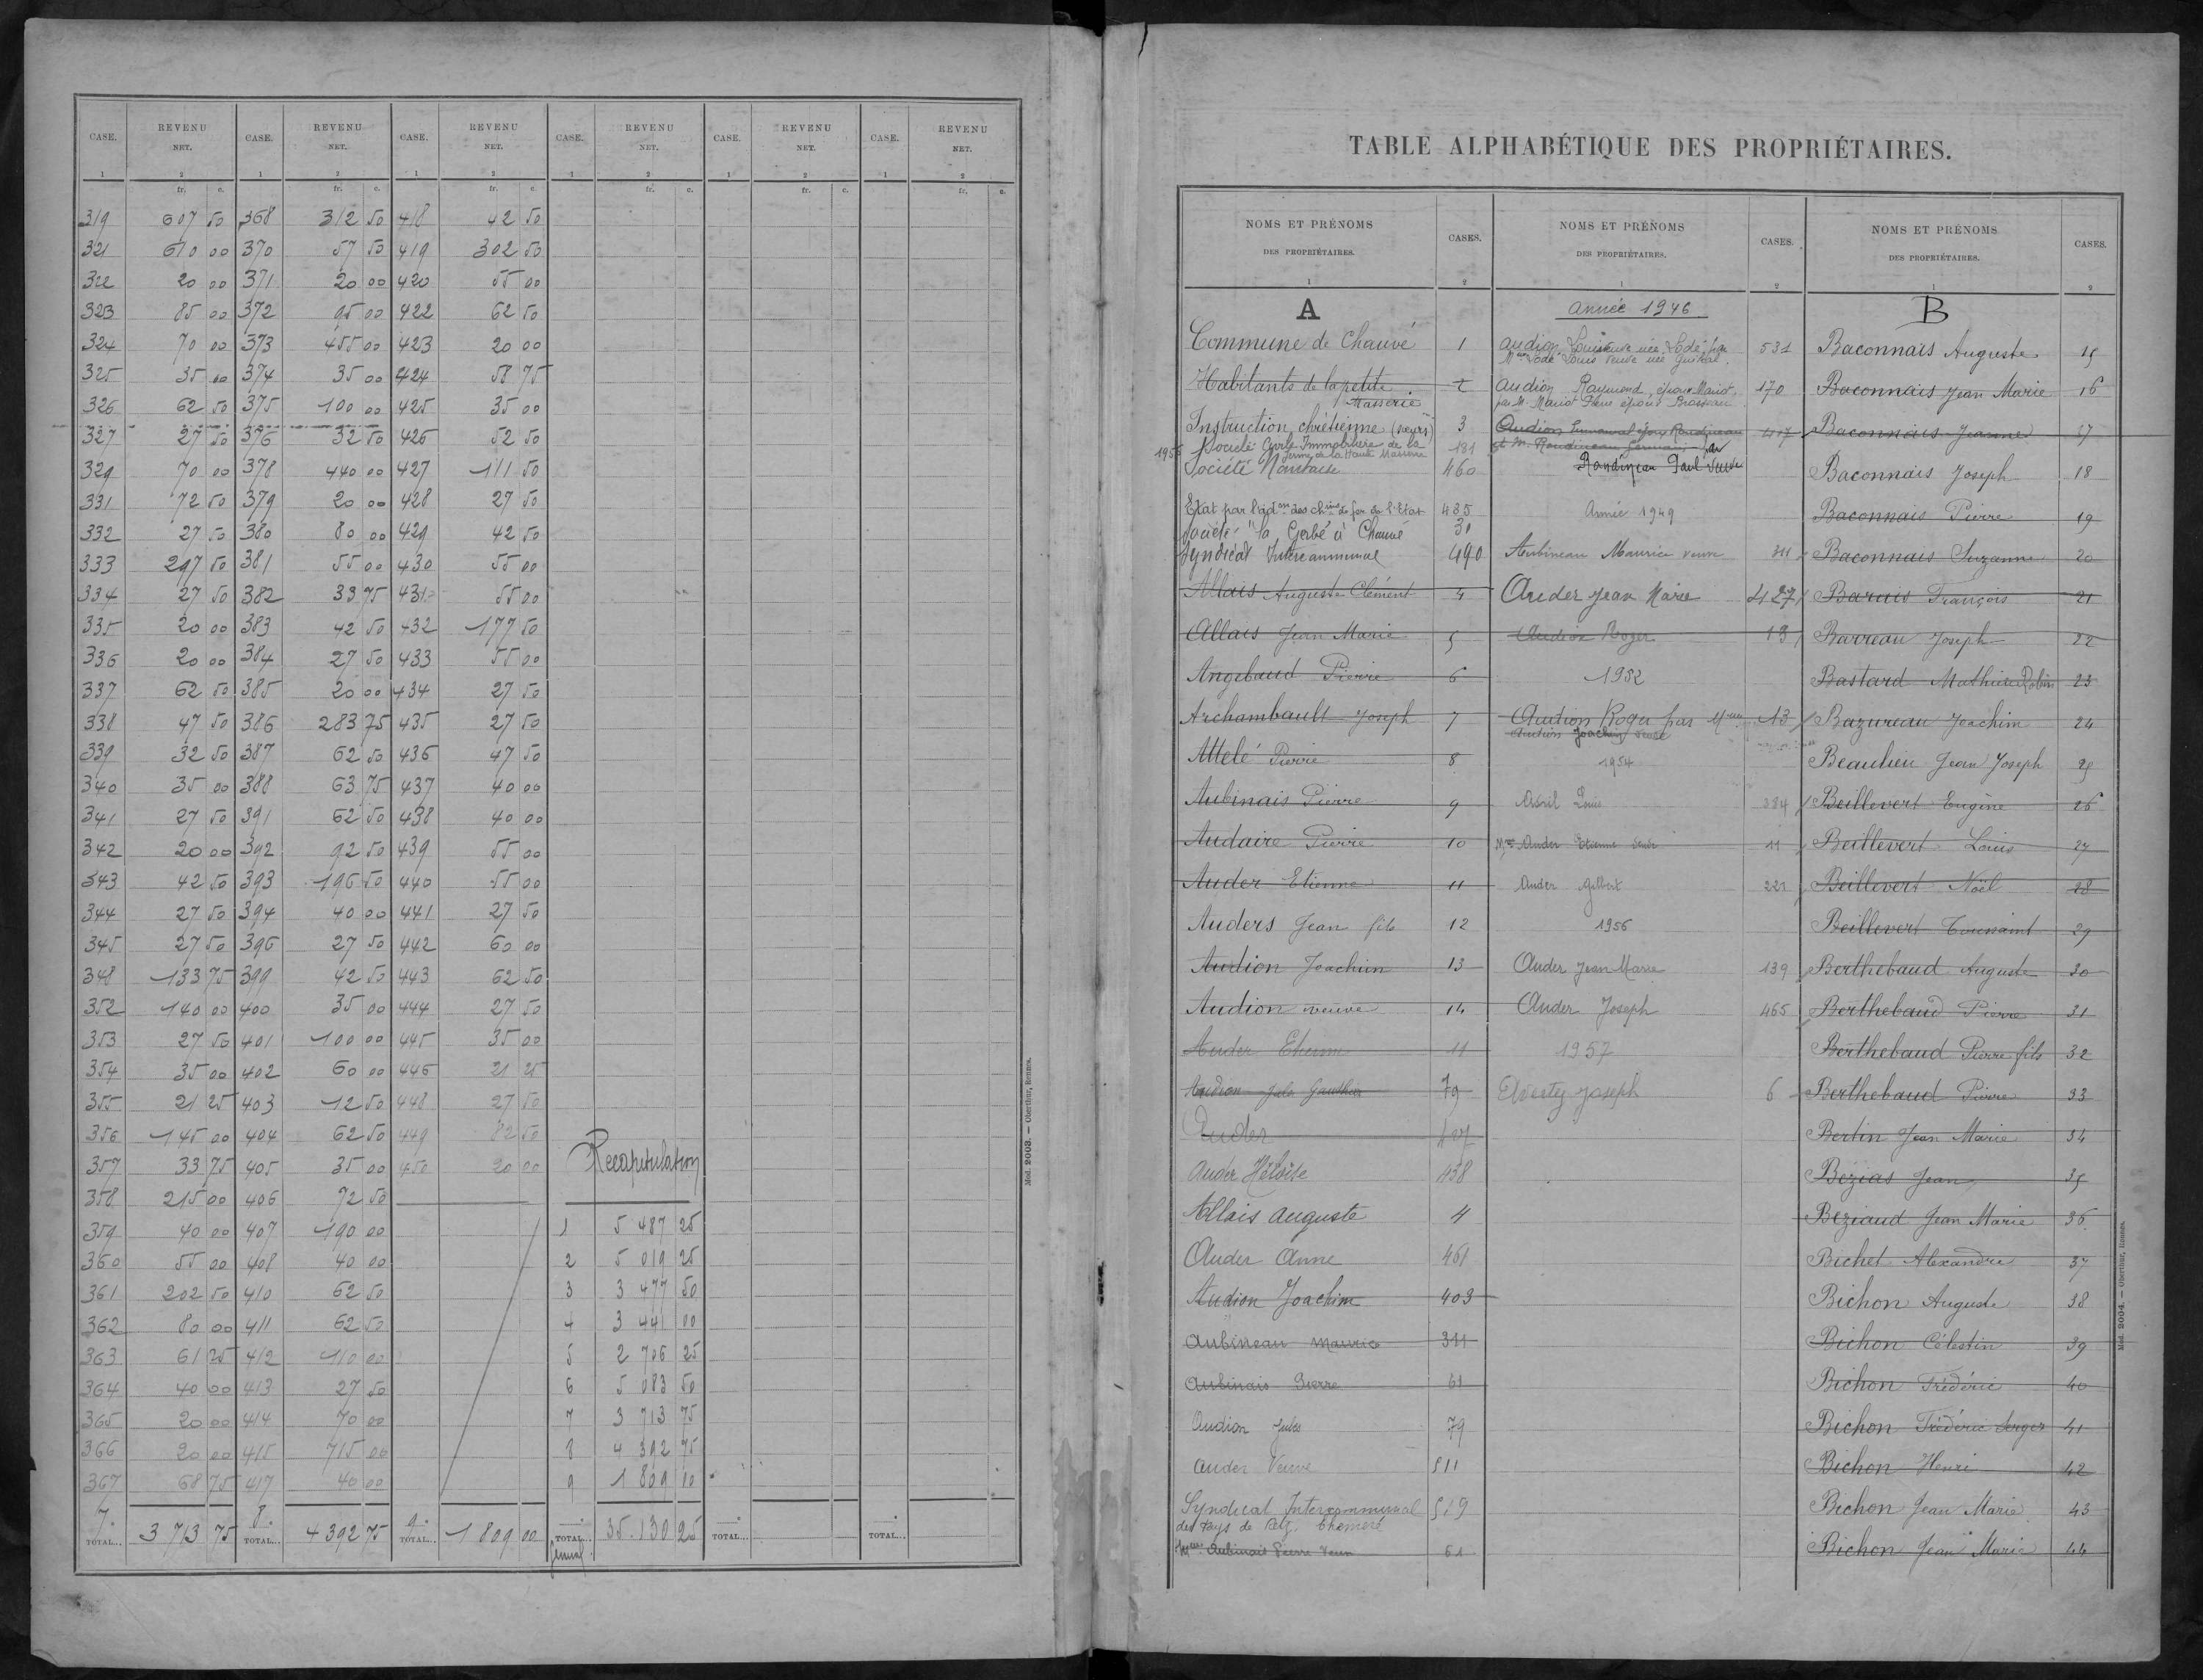 CASE. REVENU NET. CASE. REVENU NET. CASE. REVENU NET. CASE. REVENU NET. CASE. REVENU NET. CASE. REVENU NET.
1 2 1 2 1 2 1 2 1 2 1 2
fr. c. fr. c. fr. c. fr. c. fr. c. fr. c.
319 607 50 368 312 50 418 42 50
321 610 00 370 57 50 419 302 50
322 20 00 371 20 00 420 55 00
323 85 00 372 95 00 422 62 50
324 70 00 373 455 00 423 20 00
325 35 00 374 35 00 424 58 75
326 62 50 375 100 00 425 35 00
327 27 50 376 32 50 426 52 50
329 70 00 378 440 00 427 111 50
331 72 50 379 20 00 428 27 50
332 27 50 380 80 00 429 42 50
333 297 50 381 55 00 430 55 00
334 27 50 382 33 75 431 55 00
335 20 00 383 42 50 432 177 50
336 20 00 384 27 50 433 55 00
337 62 50 385 20 00 434 27 50
338 47 50 386 283 75 435 27 50
339 32 50 387 62 50 436 47 50
340 35 00 388 63 75 437 40 00
341 27 50 391 62 50 438 40 00
342 20 00 392 92 50 439 55 00
343 42 50 393 196 50 440 55 00
344 27 50 394 40 00 441 27 50
345 27 50 396 27 50 442 60 00
348 133 75 399 42 50 443 62 50
352 140 00 400 35 00 444 27 50
353 27 50 401 100 00 445 35 00
354 35 00 402 60 00 446 21 25
355 21 25 403 12 50 448 27 50
356 145 00 404 62 50 449 82 50
357 33 75 405 35 00 450 20 00 Récapitulation
358 215 00 406 72 50
359 40 00 407 190 00 1 5 487 25
360 55 00 408 40 00 2 5 019 25
361 202 50 410 62 50 3 3 477 50
362 80 00 411 62 50 4 3 441 00
363 61 25 412 110 00 5 2 706 25
364 40 00 413 27 50 6 5 083 50
365 20 00 414 70 00 7 3 713 75
366 20 00 415 715 00 8 4 392 75
367 68 75 417 40 00 9 1 809 00
7. TOTAL... 3 713 75 8. TOTAL... 4 392 75 9. TOTAL... 1 809 00 TOTAL... 35.130 25 TOTAL... TOTAL...
Mod. 2003. — Oberthur, Rennes.
TABLE ALPHABÉTIQUE DES PROPRIÉTAIRES.
NOMS ET PRÉNOMS DES PROPRIÉTAIRES. CASES. NOMS ET PRÉNOMS DES PROPRIÉTAIRES. CASES. NOMS ET PRÉNOMS DES PROPRIÉTAIRES. CASES.
1 2 1 2 1 2
A
Commune de Chauvé 1
Habitants de la petite Masserie 2
Instruction chrétienne 3
1956 Société Civile Immobilière de la ferme de la Haute Masserie 181
Société 460
Etat par l'adon des chins de fer de l'Etat 485
Société "la Gerbe" à Chauvé 31
Syndicat Intercommunal 490
Allais Auguste Clément 4
Allais Jean Marie 5
Angebaud Pierre 6
Archambault Joseph 7
Attelé Pierre 8
Aubinais Pierre 9
Audaire Pierre 10
Auder Etienne 11
Auders Jean fils 12
Audion Joachim 13
Audion veuve 14
Auder Etienne 11
Audion Jules Gauthier 79
Auder
Auder Héloïse 438
Allais Auguste 4
Auder Anne 461
Audion Joachim 403
Aubineau Maurice 311
Aubinais Pierre 61
Audion Jules 79
Auder Veuve 511
Syndicat Intercommunal 519
des Pays de Retz. Chéméré
Mme Aubinais Pierre Veuve 61
Année 1946
Audion Louis veuve née Lodé par 531
Mme Lodé Louis veuve née
Audion Raymond, époux Mariot 170
par M. Mariot époux Brosseau
Audion Emmanuel époux Rondineau 417
et M. Rondineau par
Rondineau Paul veuve
Année 1949
Aubineau Maurice veuve 311
Auder Jean Marie 427
Audion Roger 13
1952
Audion Roger par Mme 13
Audion Joachim veuve
1954
Avril Louis 384
Mme Auder Etienne veuve 11
Auder Gilbert 221
1956
Auder Jean Marie 139
Auder Joseph 465
1957
Joseph 6
B
Baconnais Auguste 15
Baconnais Jean Marie 16
Baconnais Jeanne 17
Baconnais Joseph 18
Baconnais Pierre 19
Baconnais Suzanne 20
Barais François 21
Barreau Joseph 22
Bastard Mathieu Robin 23
Bazureau Joachim 24
Beaulieu Jean Joseph 25
Beillevert Eugène 26
Beillevert Louis 27
Beillevert Noël 28
Beillevert Toussaint 29
Berthebaud Auguste 30
Berthebaud Pierre 31
Berthebaud Pierre fils 32
Berthebaud Pierre 33
Bertin Jean Marie 34
Bézias Jean 35
Béziaud Jean Marie 36
Bichet Alexandre 37
Bichon Auguste 38
Bichon Célestin 39
Bichon Frédéric 40
Bichon Frédéric 41
Bichon Henri 42
Bichon Jean Marie 43
Bichon Jean Marie 44
Mod. 2004. — Oberthur, Rennes.